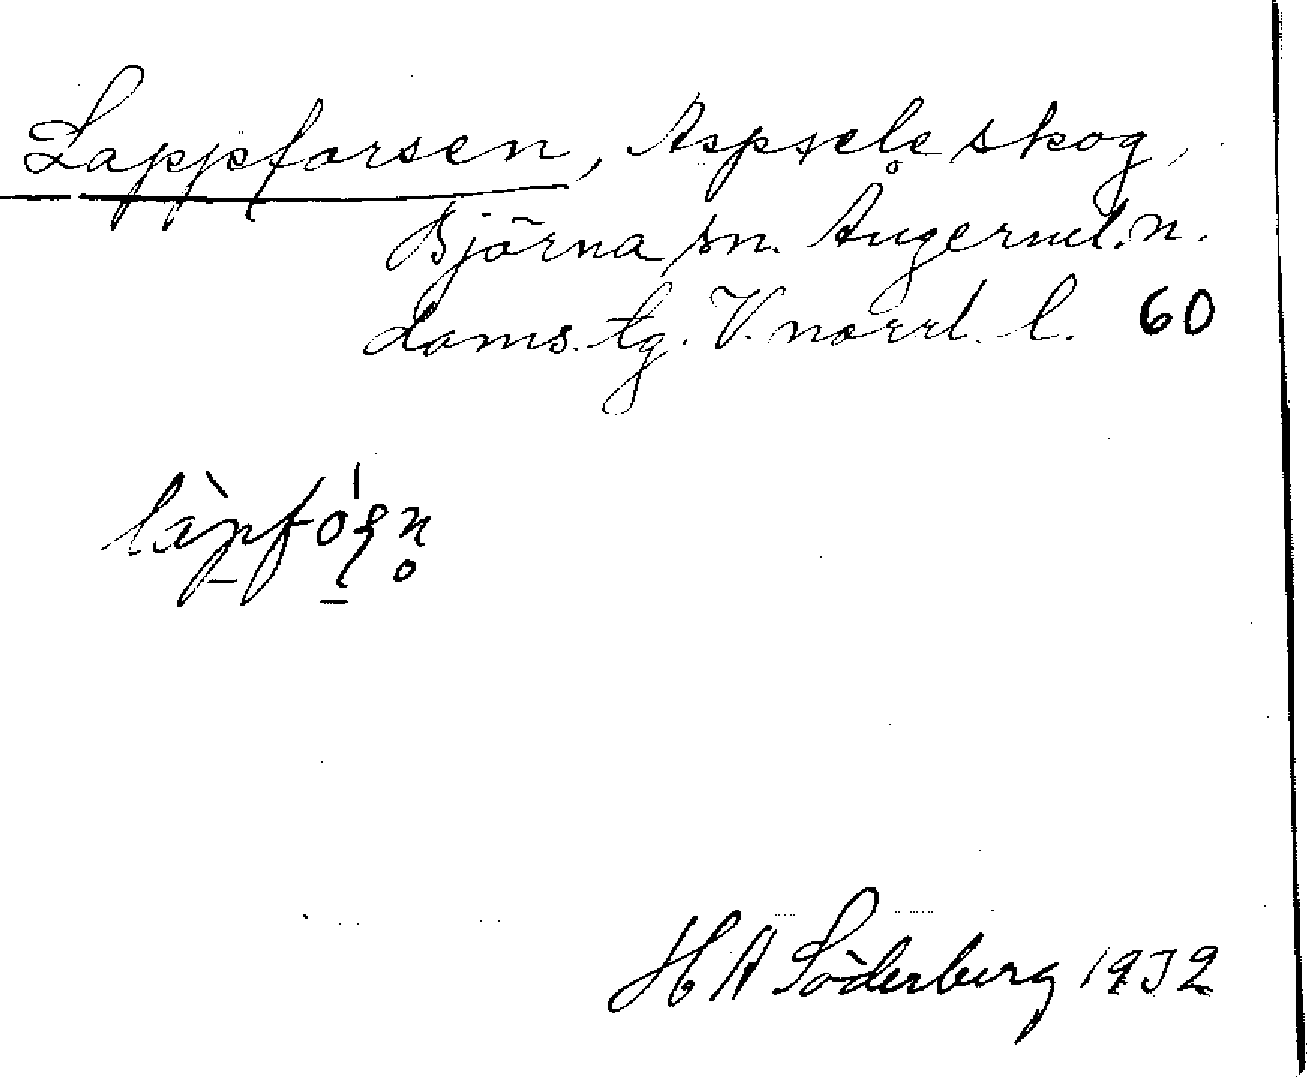 Lappforsen, Aspsele skog,
Björna sn. Ångerml. n.
doms. tg. V. norrl. l. 60
H A Söderberg 1932